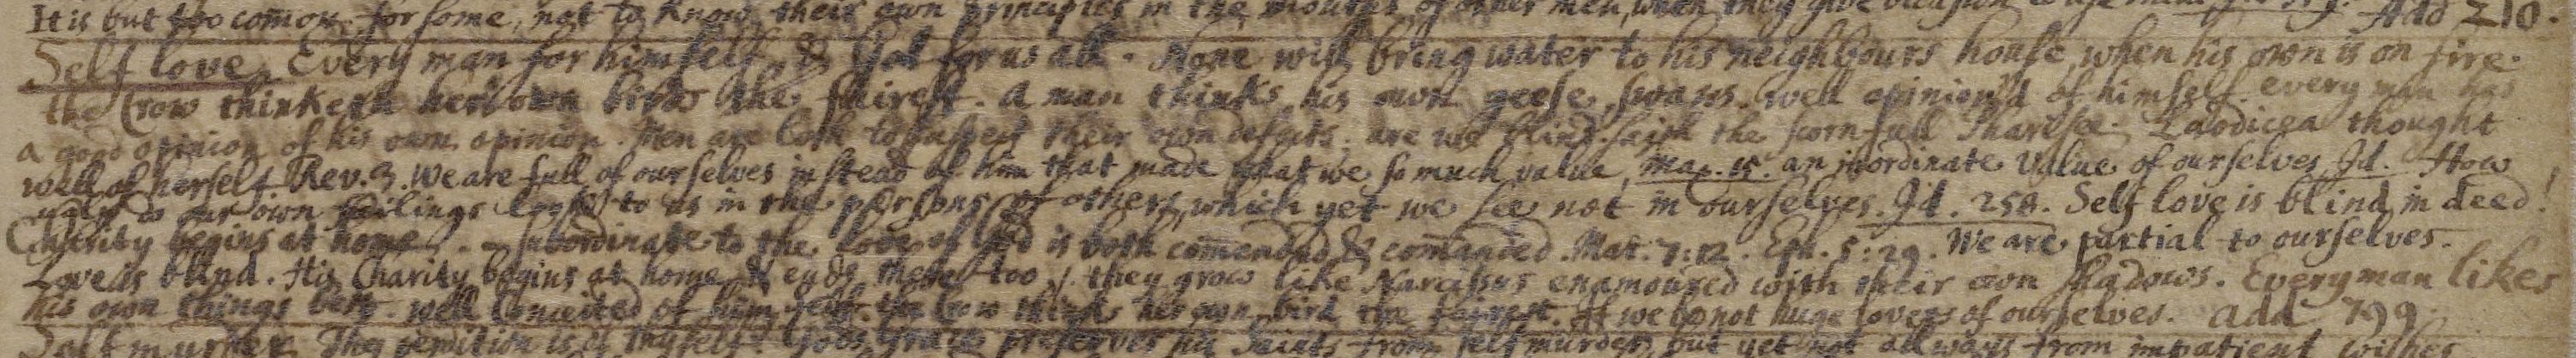 It is but too com̄on for some, not to know their own principles in the mouths of other men, when they give occasion Add 210.
Self love, Every man for himself, & God for us all. None will bring water to his neighbours house, when his own is on fire.
the Crow thinketh her own birds the fairest. a man thinks his own geese, swans. well opinion'd of himself. every man has
a good opinion of his own opinion. Men are loth to suspect their own defects. are we blind, saith the scornfull Pharisee. Laodicea thought
well of herself Rev. 3. We are full of ourselves instead of him that made what we so much value, Map. 15. an inordinate value of ourselves, Id. How
ugly do our own failings look to us in the persons of others, which yet we see not in ourselves. Id. 258. Self love is blind, in deed!
Charity begins at home. subordinate to the love of God is both com̄ended & com̄anded. Mat. 7:12. Eph. 5:29. We are partial to ourselves.
Love is blind. His Charity begins at home, & ends there too. they grow like Narcissus enamoured with their own shadows. Every man likes
his own things best. well Conceited of him self. the Crow thinks her own bird the fairest. If we be not huge lovers of ourselves. add 799.
Self murder. Thy perdition is of thyself. Gods grace preserves his Saints from self murder, but yet not allways from impatient wishes